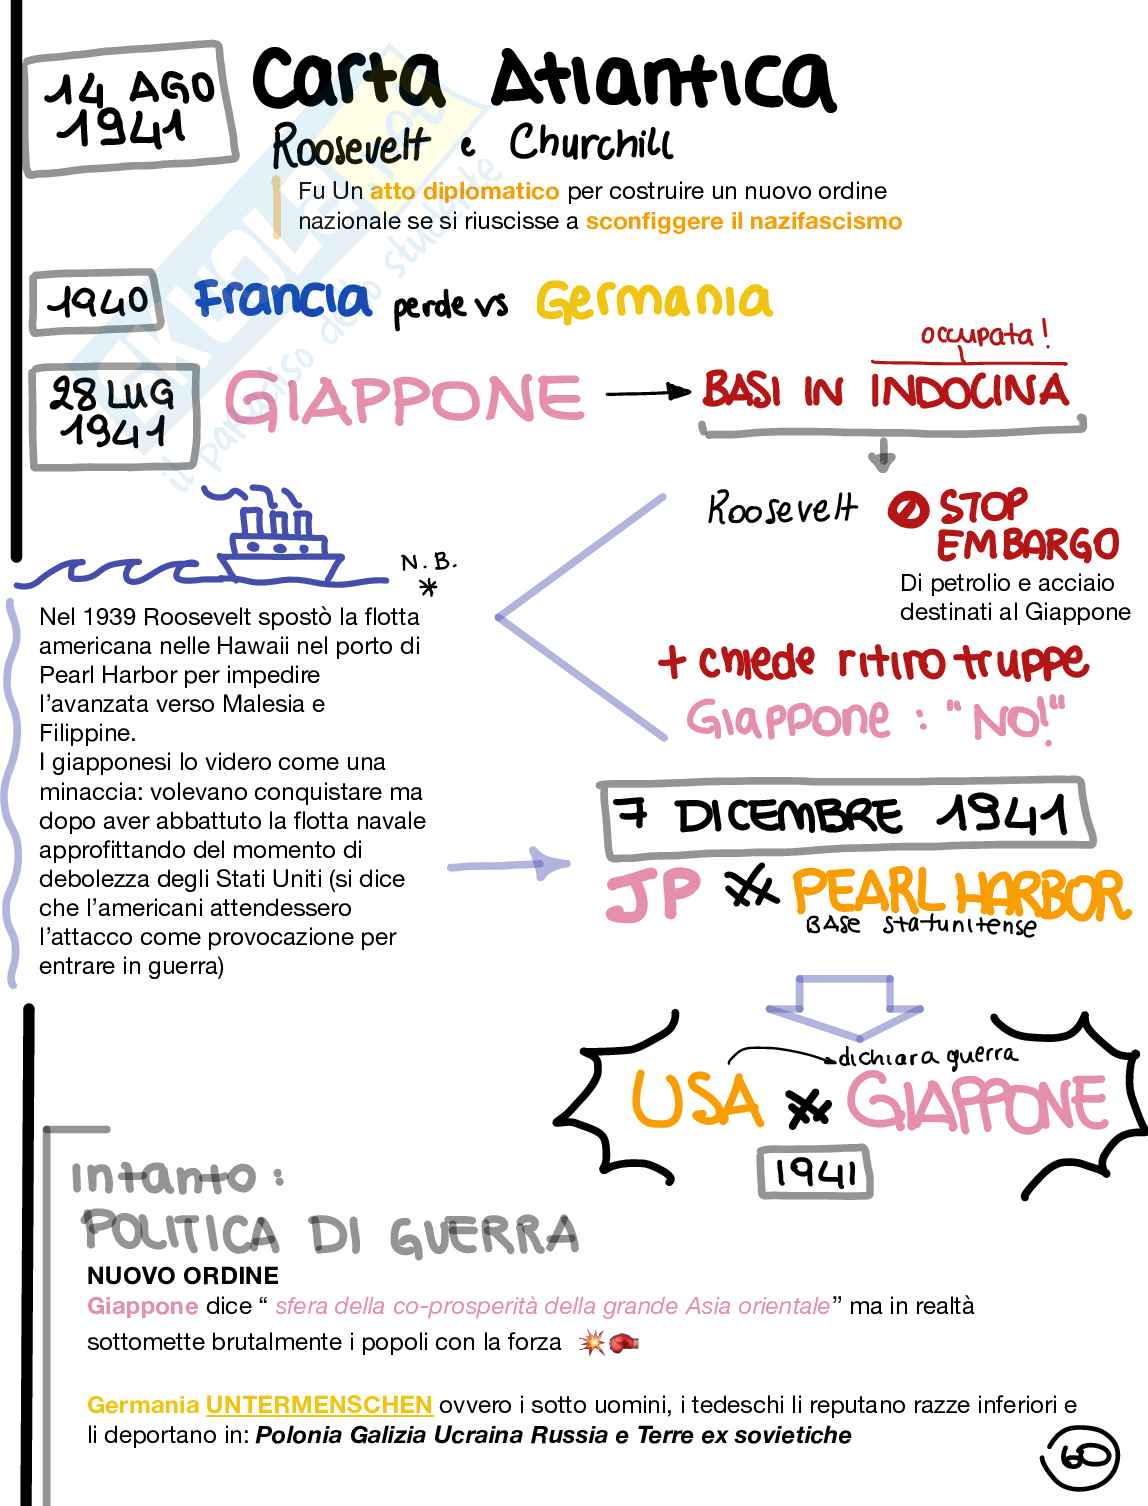 14 AGO
1941
Carta Atlantica
Roosevelt e Churchill
Fu Un atto diplomatico per costruire un nuovo ordine
nazionale se si riuscisse a sconfiggere il nazifascismo
1940
Francia perde vs Germania
28 LUG
1941
GIAPPONE
occupata!
BASI IN INDOCINA
Roosevelt
STOP
EMBARGO
Di petrolio e acciaio
destinati al Giappone
+ chiede ritiro truppe
Giappone : "NO!"
N.B.
*
Nel 1939 Roosevelt spostò la flotta
americana nelle Hawaii nel porto di
Pearl Harbor per impedire
l'avanzata verso Malesia e
Filippine.
I giapponesi lo videro come una
minaccia: volevano conquistare ma
dopo aver abbattuto la flotta navale
approfittando del momento di
debolezza degli Stati Uniti (si dice
che l'americani attendessero
l'attacco come provocazione per
entrare in guerra)
7 DICEMBRE 1941
JP PEARL HARBOR
BASE statunitense
dichiara guerra
USA GIAPPONE
1941
intanto:
POLITICA DI GUERRA
NUOVO ORDINE
Giappone dice “ sfera della co-prosperità della grande Asia orientale” ma in realtà
sottomette brutalmente i popoli con la forza 💥🥊
Germania UNTERMENSCHEN ovvero i sotto uomini, i tedeschi li reputano razze inferiori e
li deportano in: Polonia Galizia Ucraina Russia e Terre ex sovietiche
60